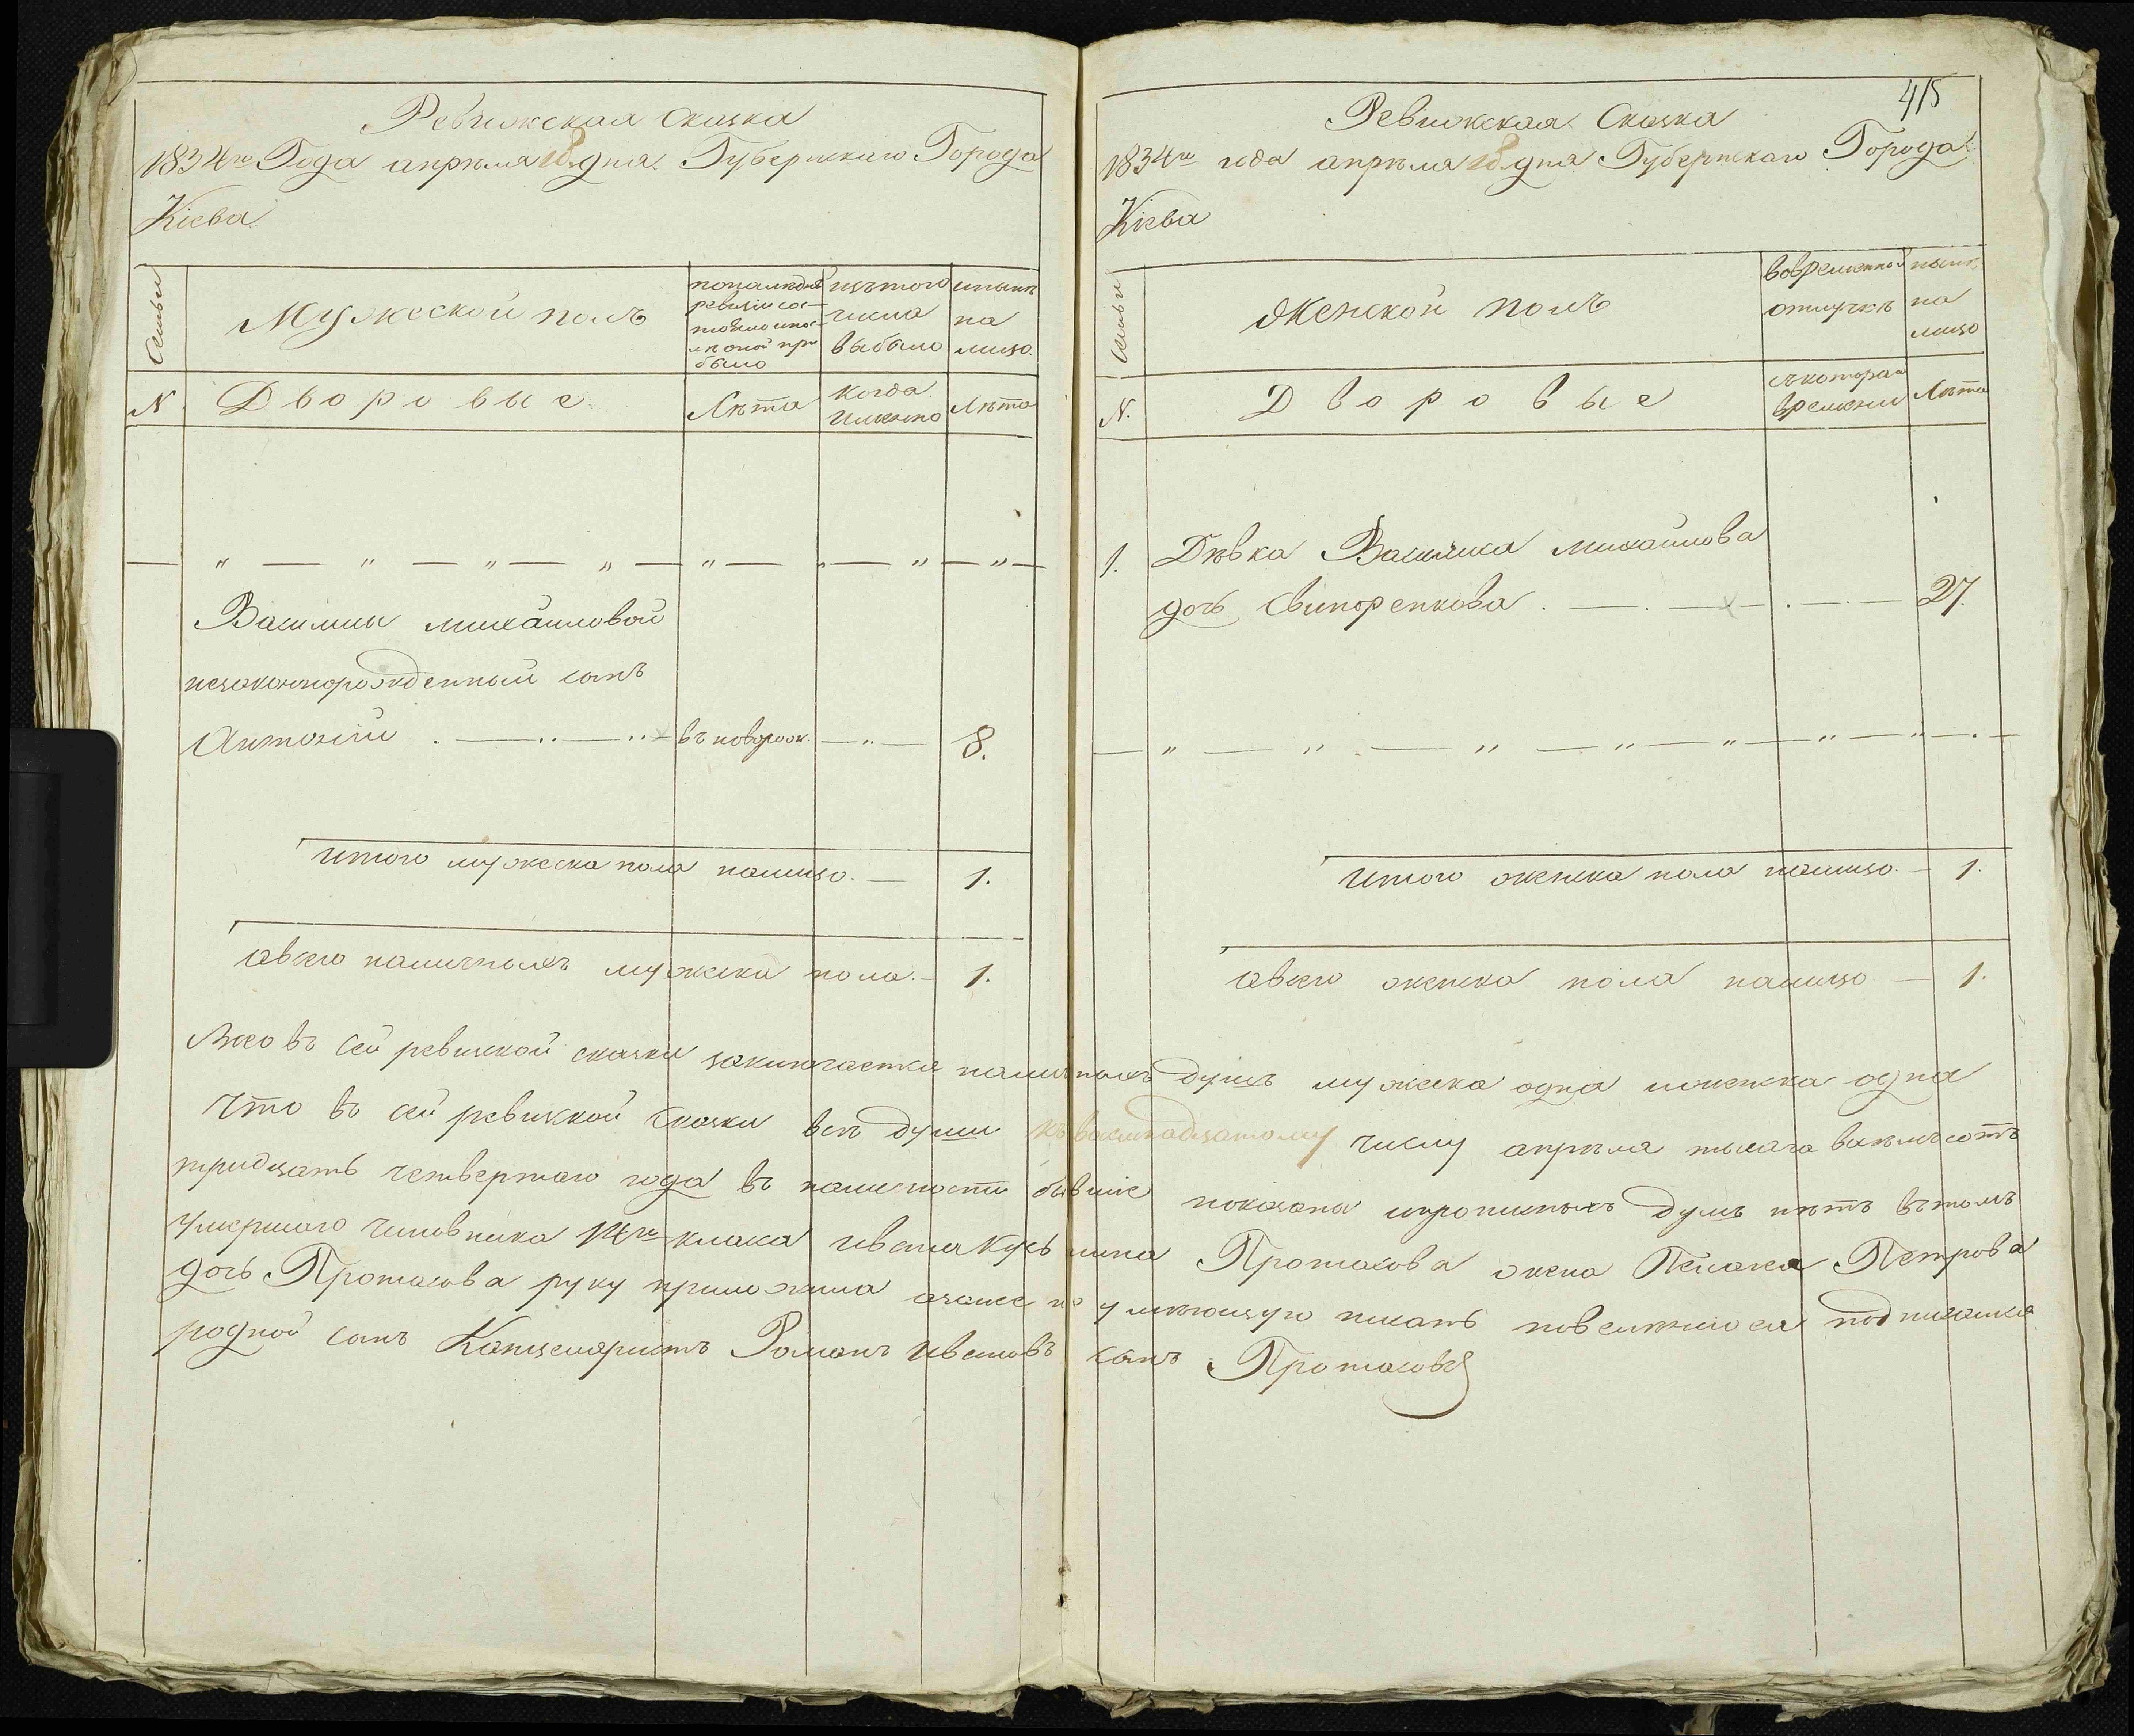 Ревижская сказка
1834го Года апреля 18 дня Губернскаго Города
Кіева
Семьи
Мужеской полъ
попоследней ревизіи состояло и после оной прибыло
изътого числа выбыло
иныне на лицо
N.
Дворовые
Лета
когда имянно
Лета
Василисы михайловой
незаконнорожденный сынъ
Антоній въ новорож. 8.
итого мужеска пола налицо. 1.
авсего наличныхъ мужеска пола. 1.
415
Ревижская Сказка
1834го года апреля 18 дня Губернскаго Города
Кіева
Семьи
Женской полъ
вовременной отлучкѣ
ныне на лицо
N.
Дворовые
съкотораго времени
Лета
1. Дѣвка Василиса михайлова
дочь Свиноренкова 27.
итого женска пола налицо. 1.
авсего женска пола налицо 1.
въ сей ревиской сказки заключается наличныхъ душъ мужеска одна иженска одна
что въ сей ревиской сказки все души къ восемнадцатому числу апреля тысяча восемьсотъ
тридцать четвертаго года въ наличности бывшие показаны ипрописныхъ душъ нѣтъ вътомъ
умершаго чиновника 14го класа ивана кузьмина Протасова жена Петрова
дочь Протасова руку приложила азанее не умеющую писать повелению ея подписался
родной сынъ Канцеляристъ Романъ Ивановъ сынъ Протасовъ